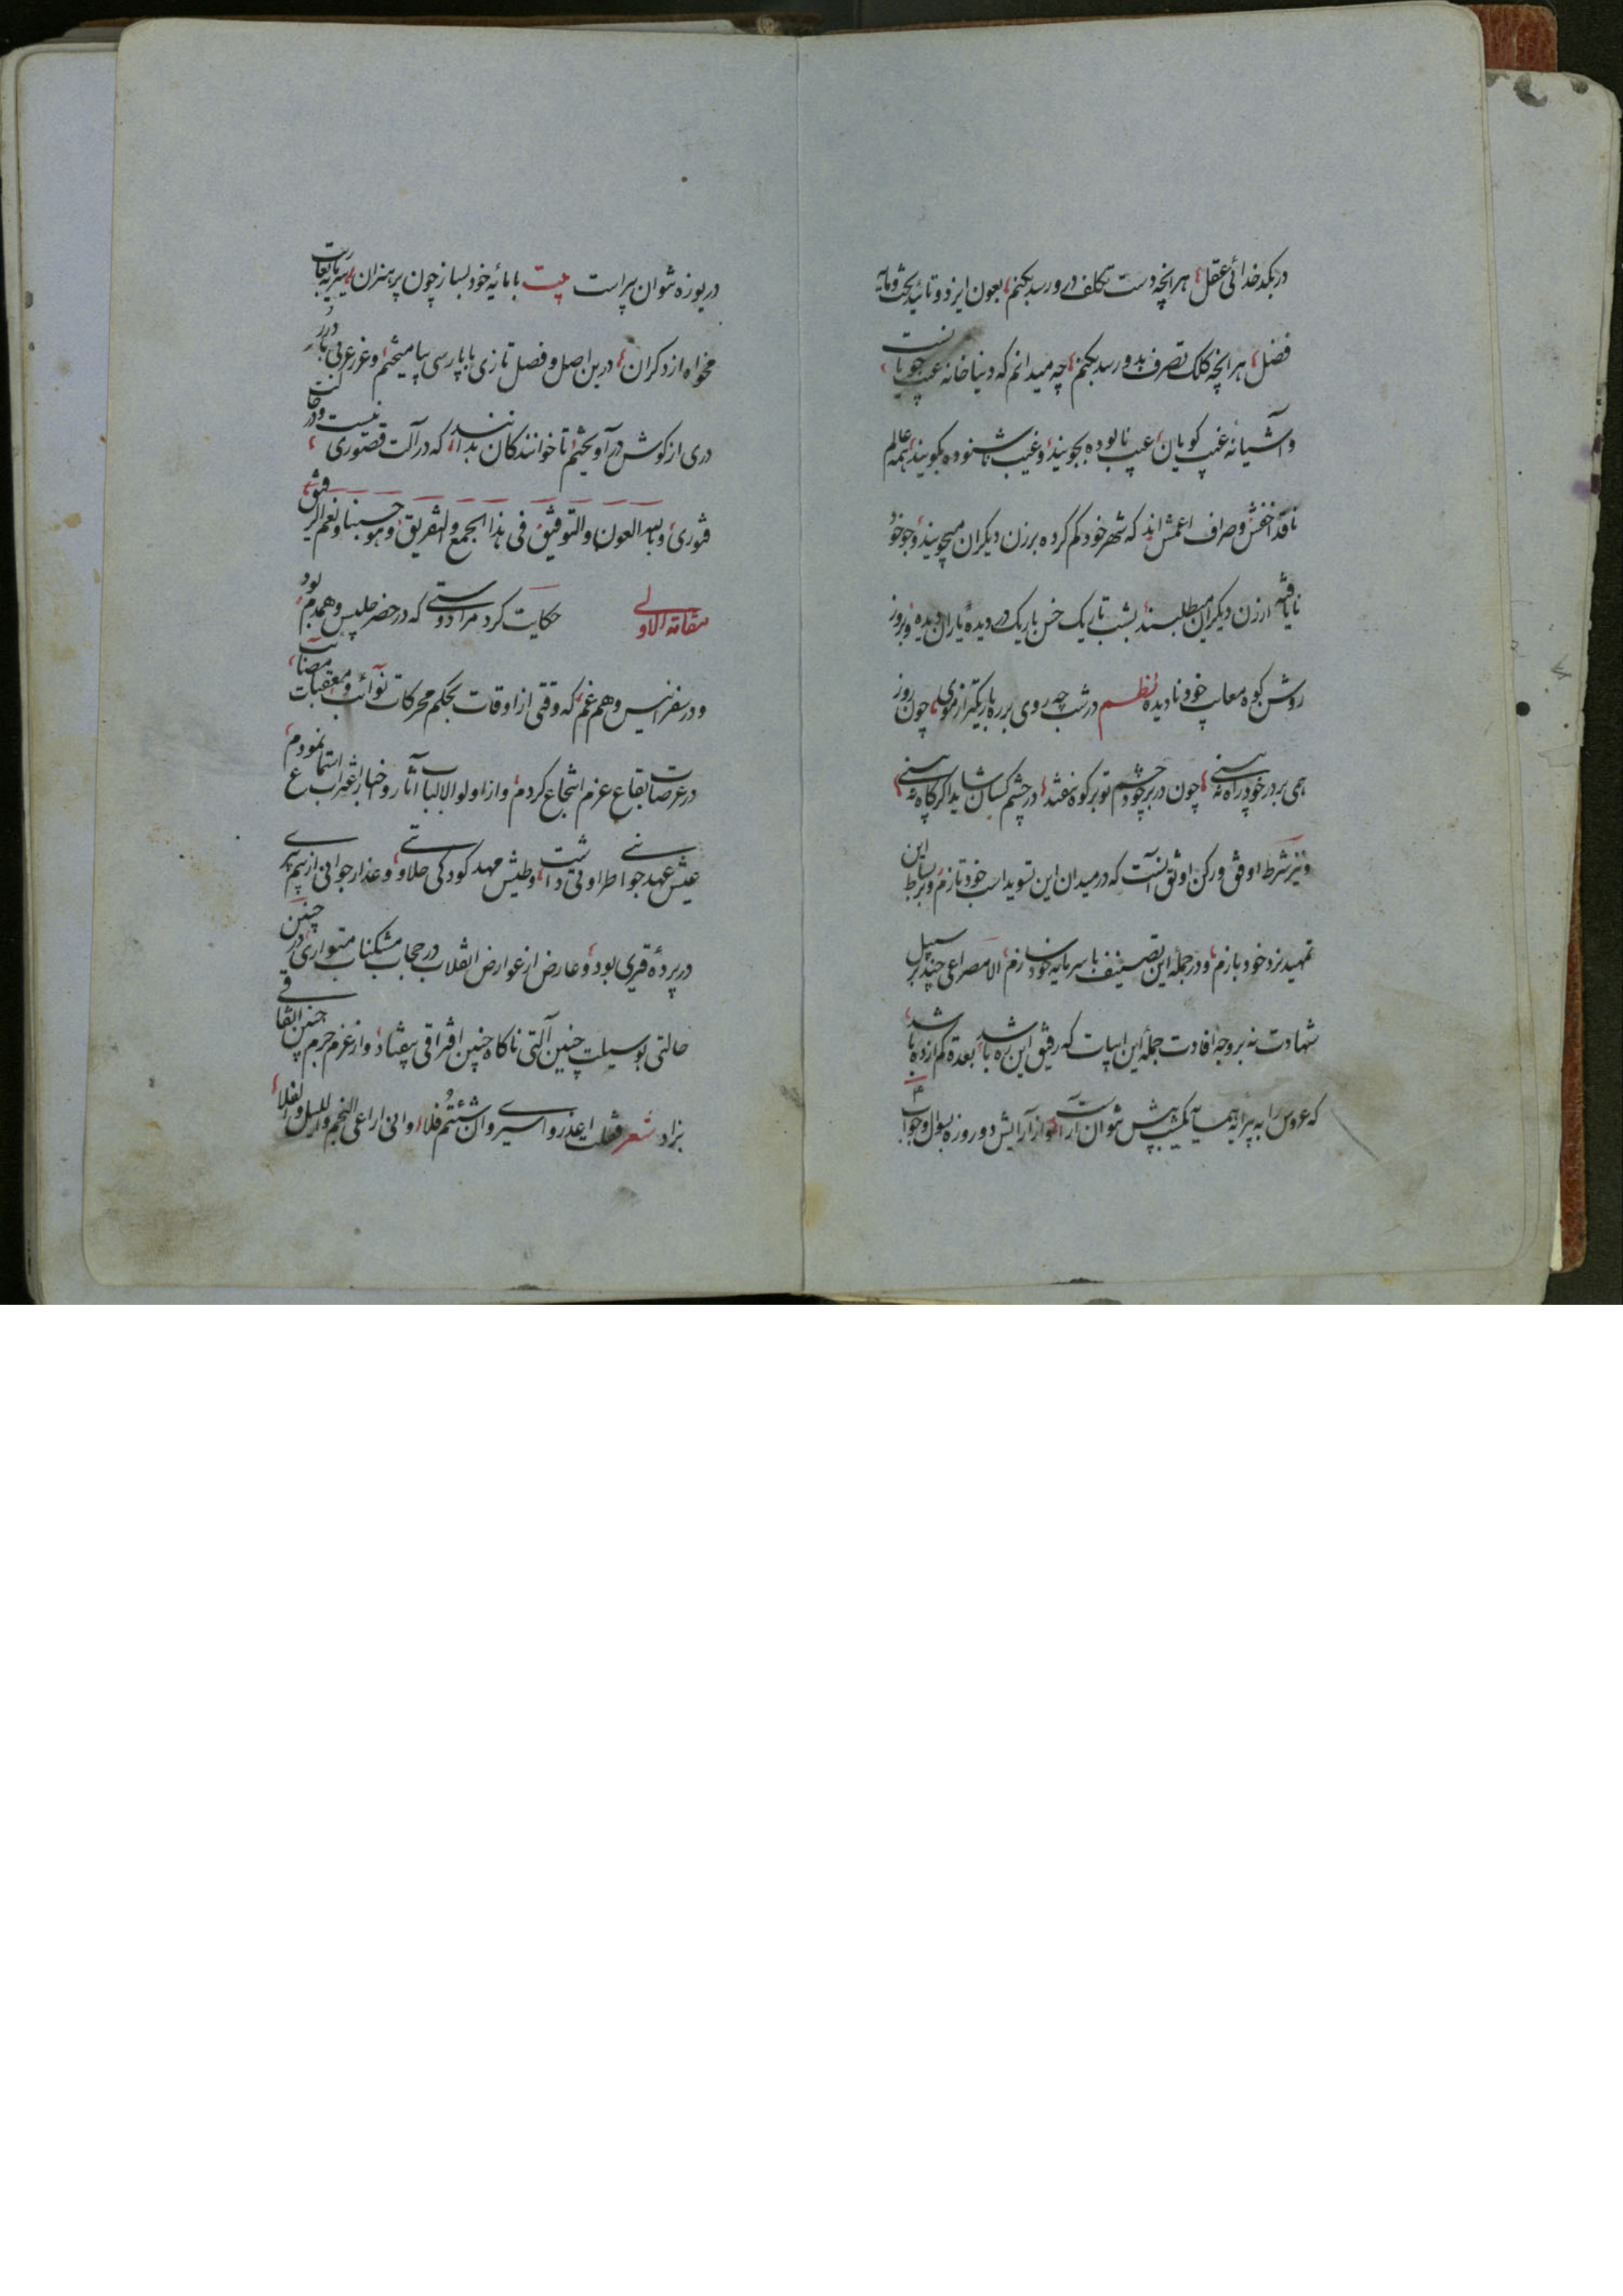 در بکد خدائی عقل هرانچه دست تکلف درو رسد بکنم بعون ایزد و تائید بخت و مایه
فضل هرانچه کلک تصرف بدو رسد بکنم چه میدانم که دنیا خانه عیب جویانست
و آشیانه غیب کویان عیب نابوده بجویند و غیب ناشنوده بکویند همه عالم
ناقد اخفش و صراف اعمش اند که شهر خود کم کرده برزن دیکران میجویند و جو خود
نایافته ارزن دیکران میطلبند بشب تاریک خس باریک در دیده یاران دیده و بروز
روشن کوه معایب خود نادیده نظم در شب چه روی بر ره باریکتر از موی چون روز
همی بر در خود راه نه بینی چون در بر خود چشم تو بر کوه نیفتد در چشم کسان شاید اکر کاه نه بینی
و نیز شرط اوفق و رکن اوثق آنست که در میدان این تسوید اسب خود تازم و بر بساط این
تمهید نرد خود بازم و در جمله این تصنیف با سرمایه خود سازم الا مصراعی چند بر سبیل
شهادت نه بر وجه افادت جمله این ابیات که رفیق این ره باشد بعدة کم از ده باشد
که عروس را به پیرایه همسایه یکشب بیش نتوان آراست و از آرایش دو روزه بسوال و جواب
دریوزه نتوان پیراست بیت با مایه خود بساز چون پر هنران سرمایه بعاریت
مخواه از دکران درین اصل و فصل تازی با پارسی بیامیختم و غرر عربی با درر
دری از کوش در آویختم تا خوانندکان بدانند که در آلت قصوری نیست و در حالت
فتوری و بالله العون والتوفیق فی هذا الجمع والتفریق وهو حسبنا ونعم الرفیق
مقامة الاولی حکایت کرد مرا دوستی که در حضر جلیس و همدم بود
و در سفر انیس و هم غم که وقتی از اوقات بحکم محرکات نوائب و معقبات مصائب
در عرصات بقاع عزم انتجاع کردم و از اولوالالباب آثار و اخبار اغتراب استماع نمودم
عیش عهد جوانی طراوتی داشت و طیش مهد کودکی حلاوتی و عذار جوانی از بیم پیری
در پرده قیری بود و عارض از عوارض انقلاب در حجاب مشکناب متواری در چنین
حالتی بوسیلت چنین آلتی ناکاه چنین افتراقی بیفتاد و از عزم جرم چنین اتفاقی
بزاد شعر فقلت ایعذر واسیری وان شئتم فلا وانی اراعی النجم واللیل والفلا